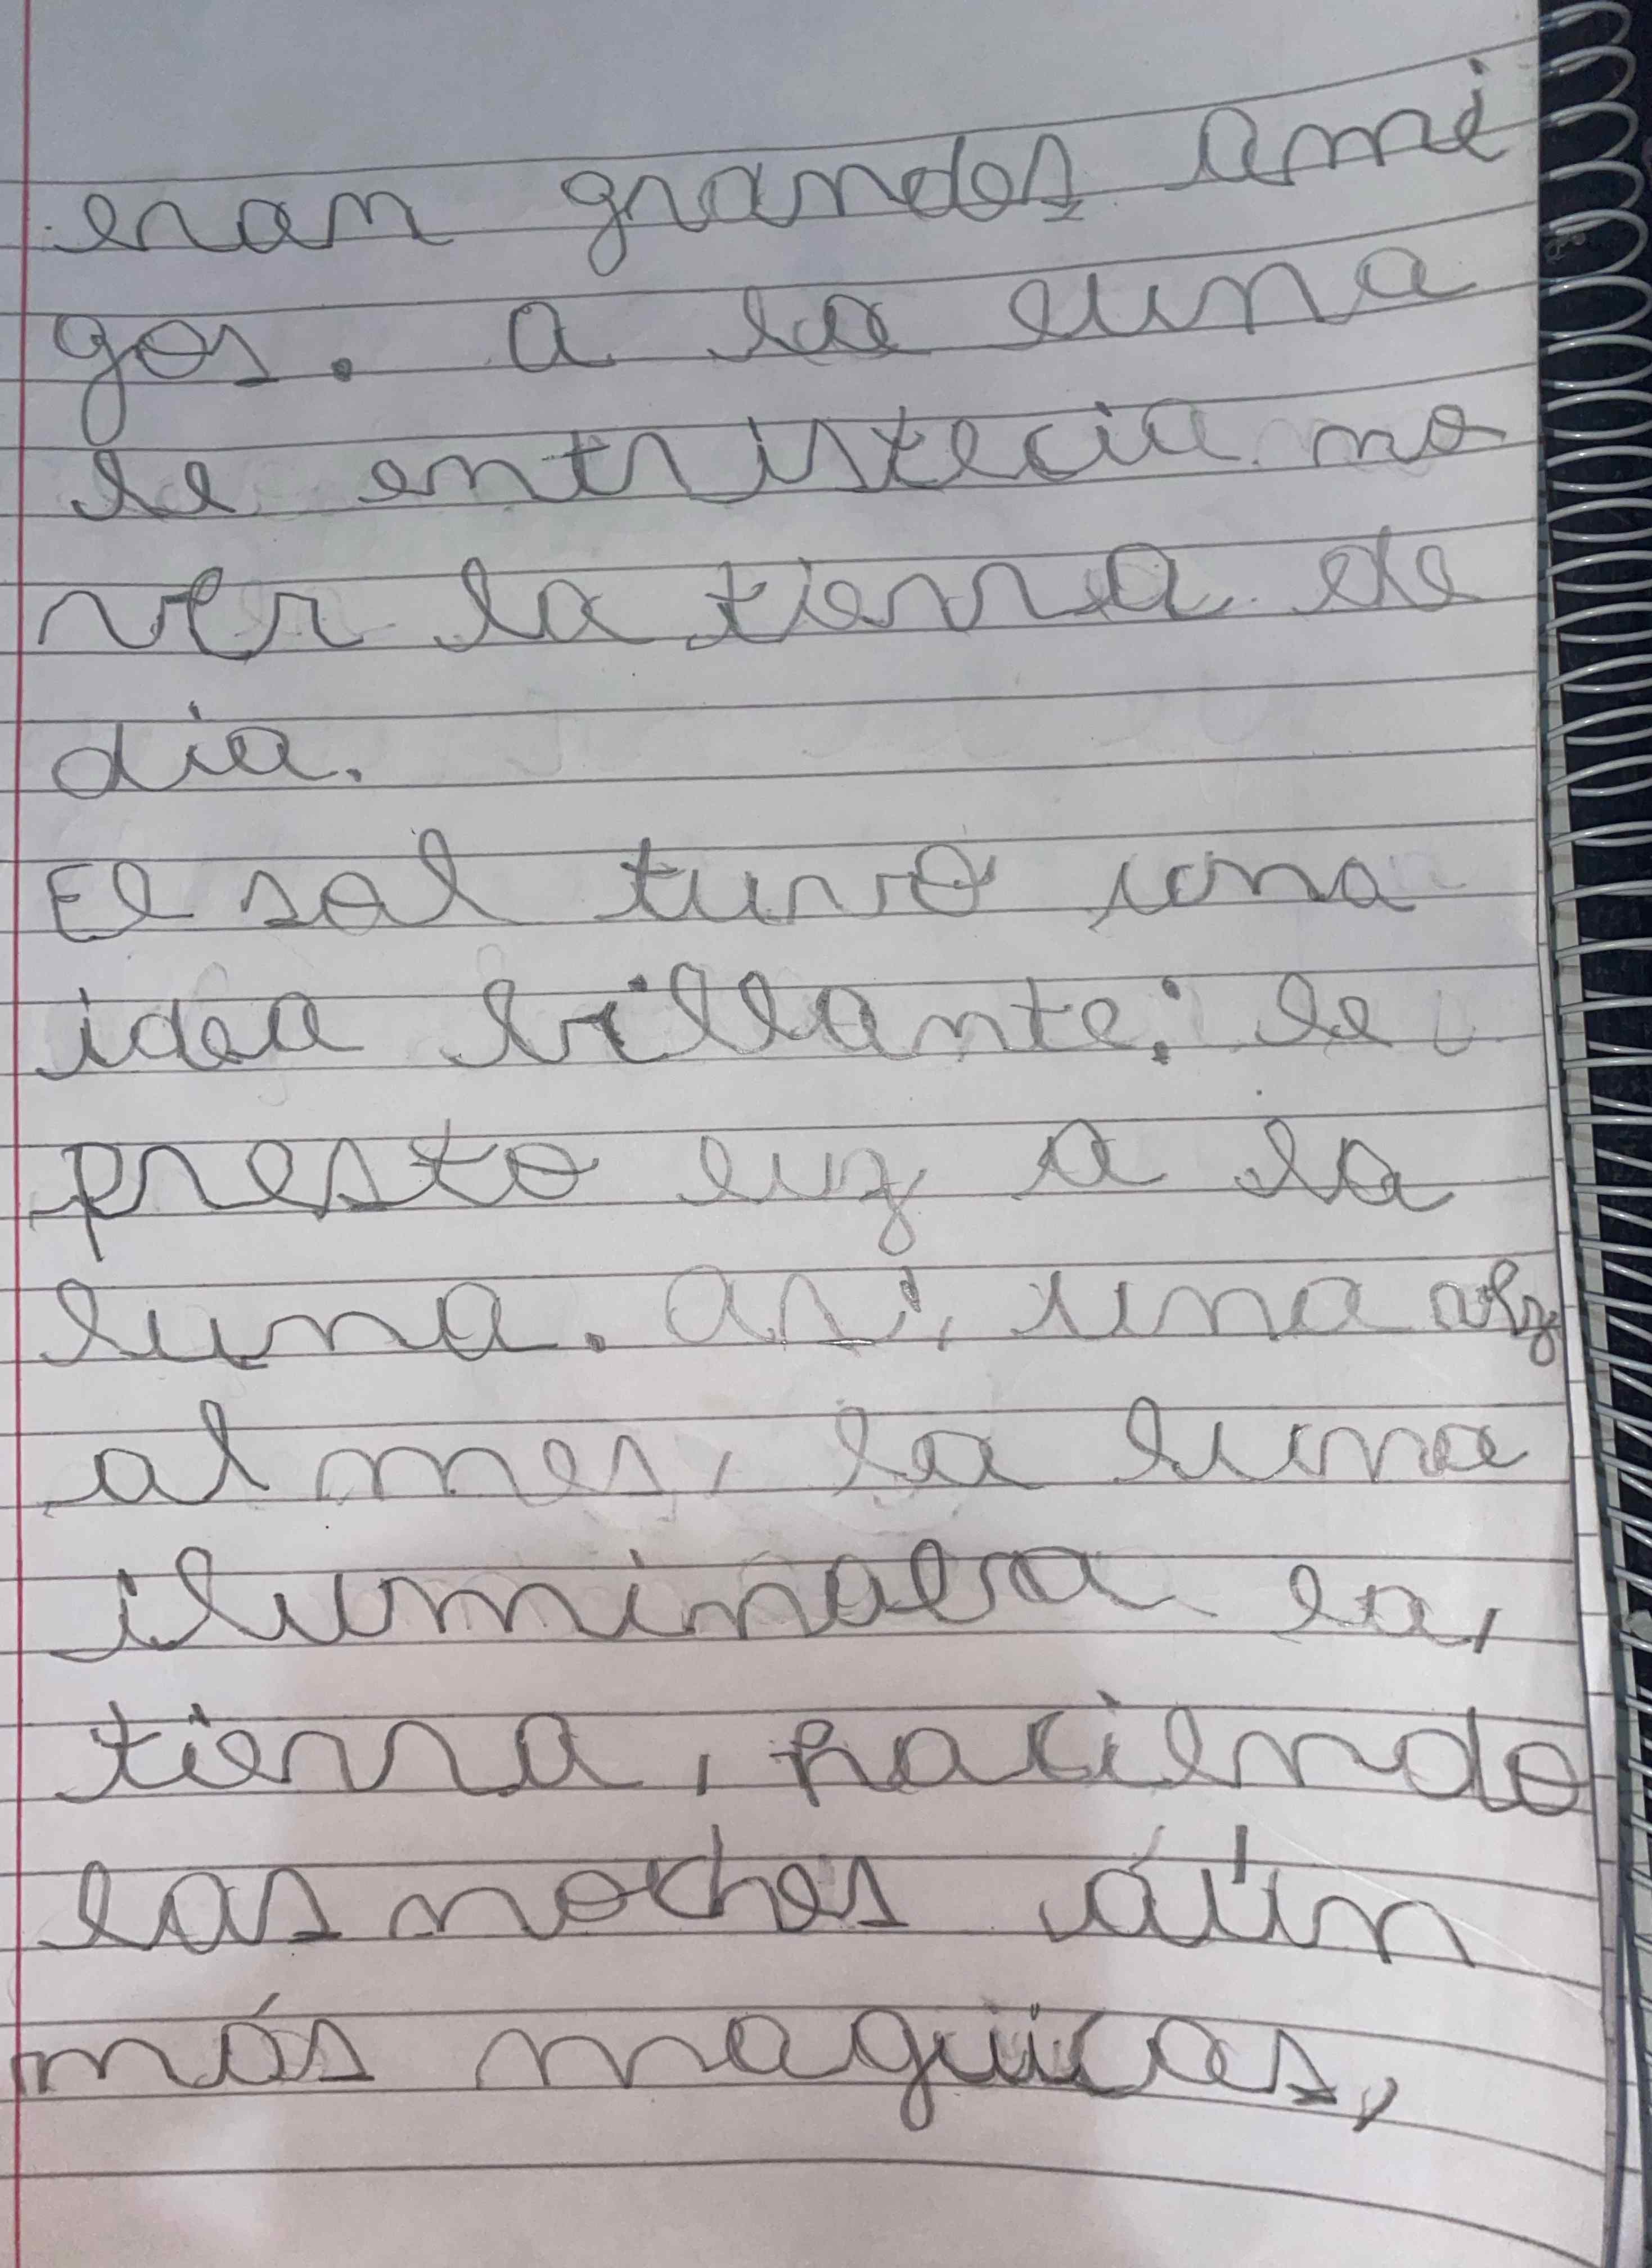 eran grandes ami
gos. a la luna
le entristecia no
ver la tierra de
dia.
El sol tuvo una
idea brillante: le
presto luz a la
luna. así, una vez
al mes, la luna
iluminaba la,
tierra, haciendo
las noches áún
más maguicas,